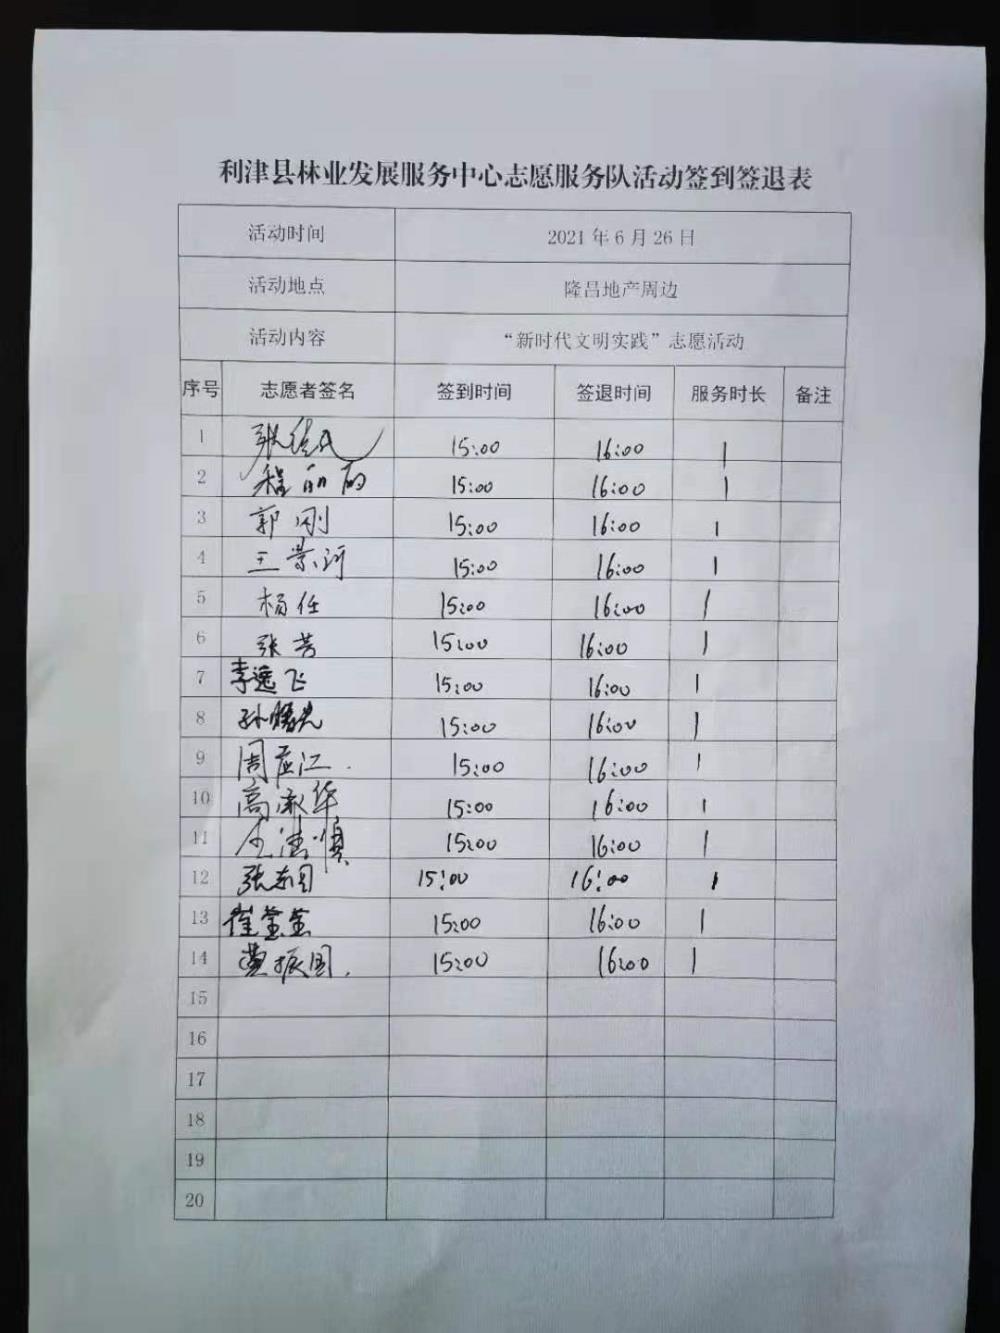 利津县林业发展服务中心志愿服务队活动签到签退表
活动时间 2021 年 6 月 26 日
活动地点 隆昌地产周边
活动内容 “新时代文明实践”志愿活动
序号 志愿者签名 签到时间 签退时间 服务时长 备注
1 15:00 16:00 1
2 程丽丽 15:00 16:00 1
3 郭刚 15:00 16:00 1
4 王景河 15:00 16:00 1
5 杨任 15:00 16:00 1
6 张芳 15:00 16:00 1
7 李逸飞 15:00 16:00 1
8 孙曙光 15:00 16:00 1
9 15:00 16:00 1
10 高淑华 15:00 16:00 1
11 15:00 16:00 1
12 15:00 16:00 1
13 崔莹莹 15:00 16:00 1
14 15:00 16:00 1
15
16
17
18
19
20